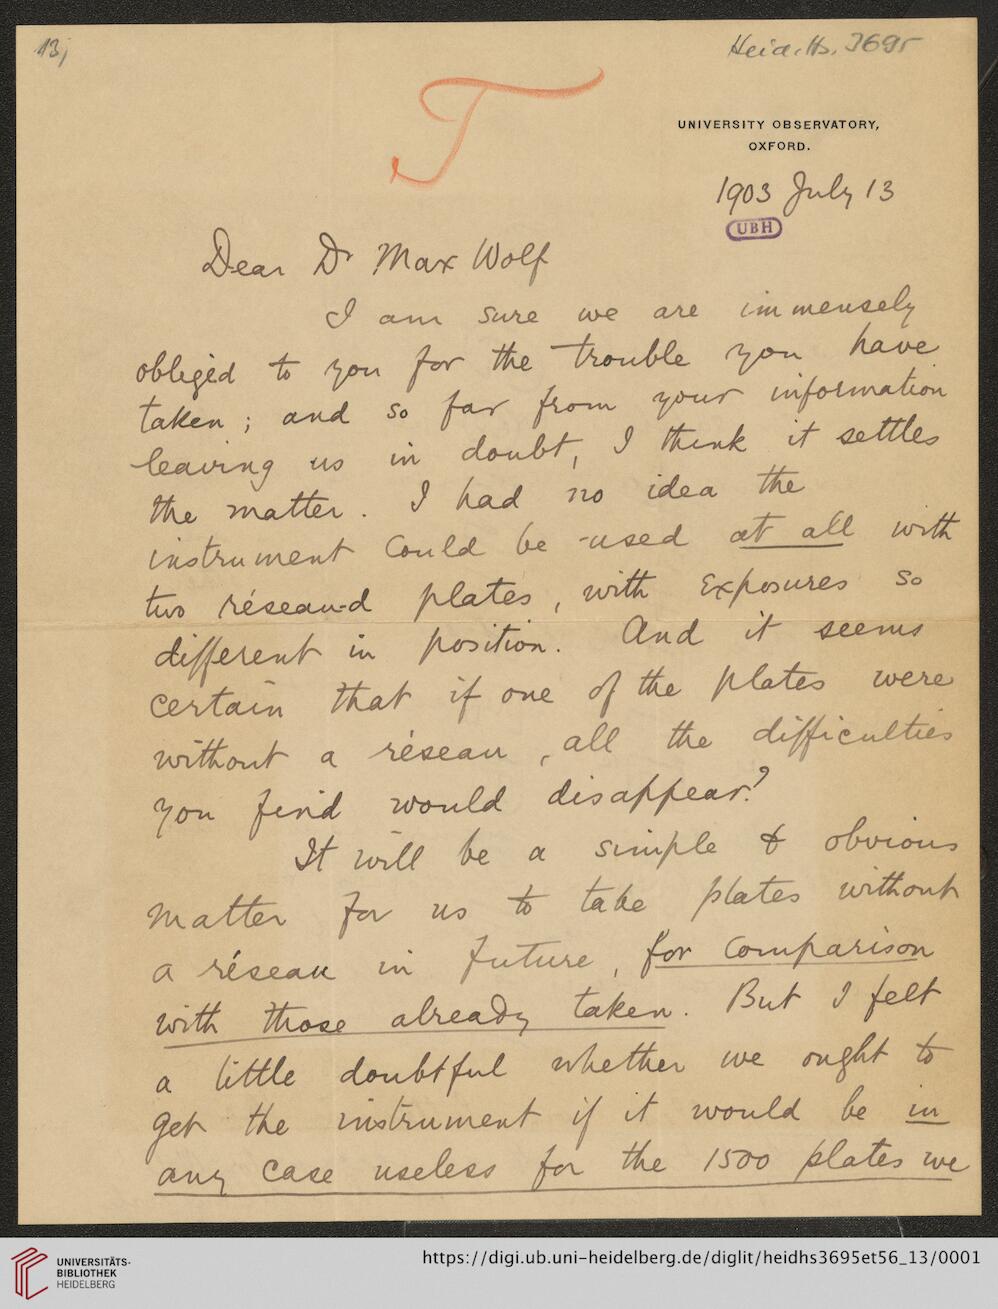 13,
Heid. Hs. 3695
T
UNIVERSITY OBSERVATORY,
OXFORD.
1903 July 13
UBH
Dear Dr Max Wolf
I am sure we are immensely
obliged to you for the trouble you have
taken; and so far from your information
leaving us in doubt, I think it settles
the matter. I had no idea the
instrument could be used at all with
two réseau-d plates, with exposures so
different in position. And it seems
certain that if one of the plates were
without a réseau, all the difficulties
you find would disappear?
It will be a simple & obvious
matter for us to take plates without
a réseau in future, for comparison
with those already taken. But I felt
a little doubtful whether we ought to
get the instrument if it would be in
any case useless for the 1500 plates we
UNIVERSITÄTS-
BIBLIOTHEK
HEIDELBERG
https://digi.ub.uni-heidelberg.de/diglit/heidhs3695et56_13/0001